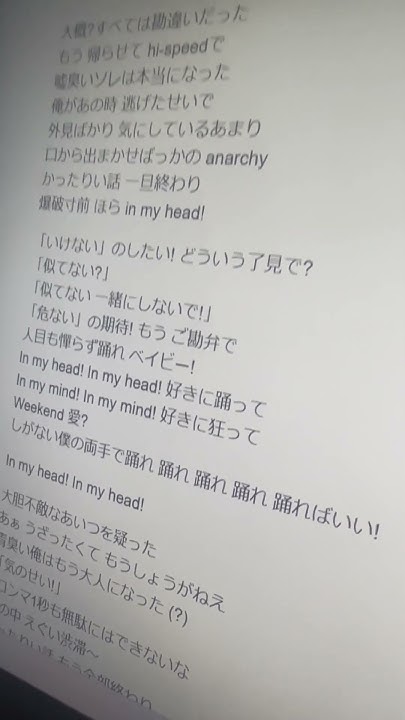 人概?すべては勘違いだった
もう 帰らせて hi-speedで
嘘臭いソレは本当になった
俺があの時 逃げたせいで
外見ばかり 気にしているあまり
口から出まかせばっかの anarchy
かったりい話 一旦終わり
爆破寸前 ほら in my head!
「いけない」のしたい! どういう了見で?
「似てない?」
「似てない 一緒にしないで!」
「危ない」の期待! もう ご勘弁で
人目も憚らず踊れ ベイビー!
In my head! In my head! 好きに踊って
In my mind! In my mind! 好きに狂って
Weekend 愛?
しがない僕の両手で踊れ 踊れ 踊れ 踊れ 踊ればいい!
In my head! In my head!
大胆不敵なあいつを疑った
あぁ うざったくて もうしょうがねえ
青臭い俺はもう大人になった (?)
「気のせい!」
コンマ1秒も無駄にはできないな
の中 えぐい渋滞〜
もう全部終わり